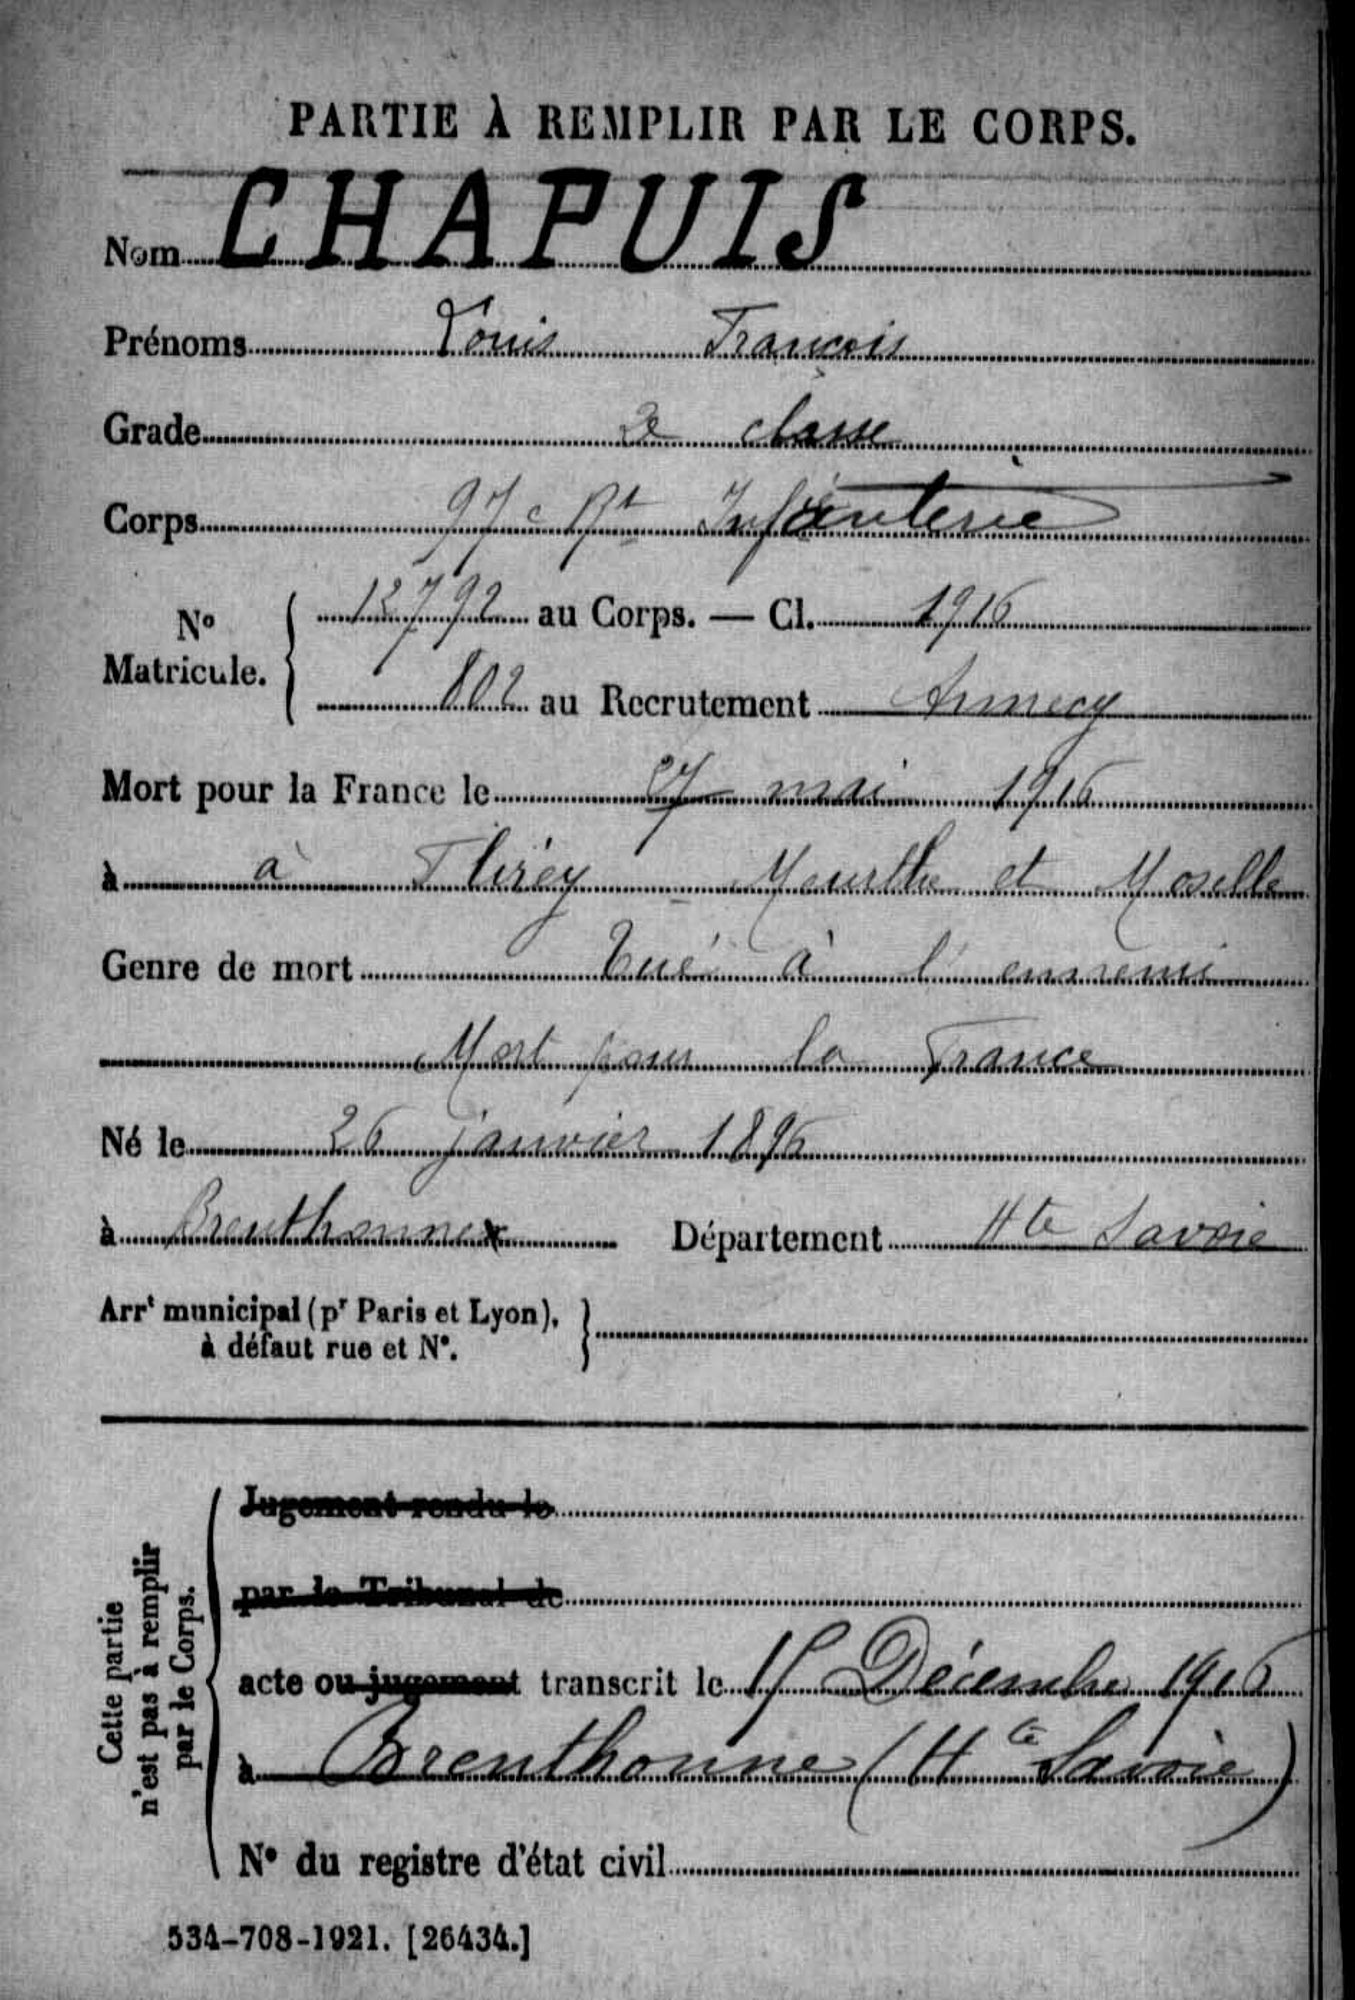 PARTIE À REMPLIR PAR LE CORPS.
Nom CHAPUIS
Prénoms Louis François
Grade 2e classe
Corps 97e Rt Infanterie
No Matricule. { 12792 au Corps. — Cl. 1916
802 au Recrutement Annecy
Mort pour la France le 27 mai 1916
à à Flirey Meurthe et Moselle
Genre de mort Tué à l'ennemi
Mort pour la France
Né le 26 janvier 1896
à Brenthonnex Département Hte Savoie
Arrt municipal (pr Paris et Lyon), }
à défaut rue et No.
Cette partie
n'est pas à remplir
par le Corps.
Jugement rendu le
par le Tribunal de
acte ou jugement transcrit le 15 Décembre 1916
à Brenthonne (Hte Savoie)
No du registre d'état civil
534-708-1921. [26434.]